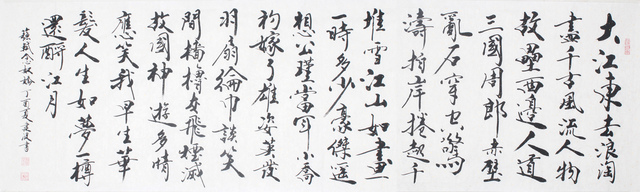 大江東去浪淘
盡千古風流人物
故壘西邊人道
三國周郎赤壁
亂石穿空驚
濤拍岸捲起千
堆雪江山如畫
一時多少豪傑遥
想公瑾當年小喬
初嫁了雄姿英發
羽扇綸巾談笑
間檣櫓灰飛煙滅
故國神遊多情
應笑我早生華
髮人生如夢一樽
還酹江月
蘇軾念奴嬌丁酉夏書